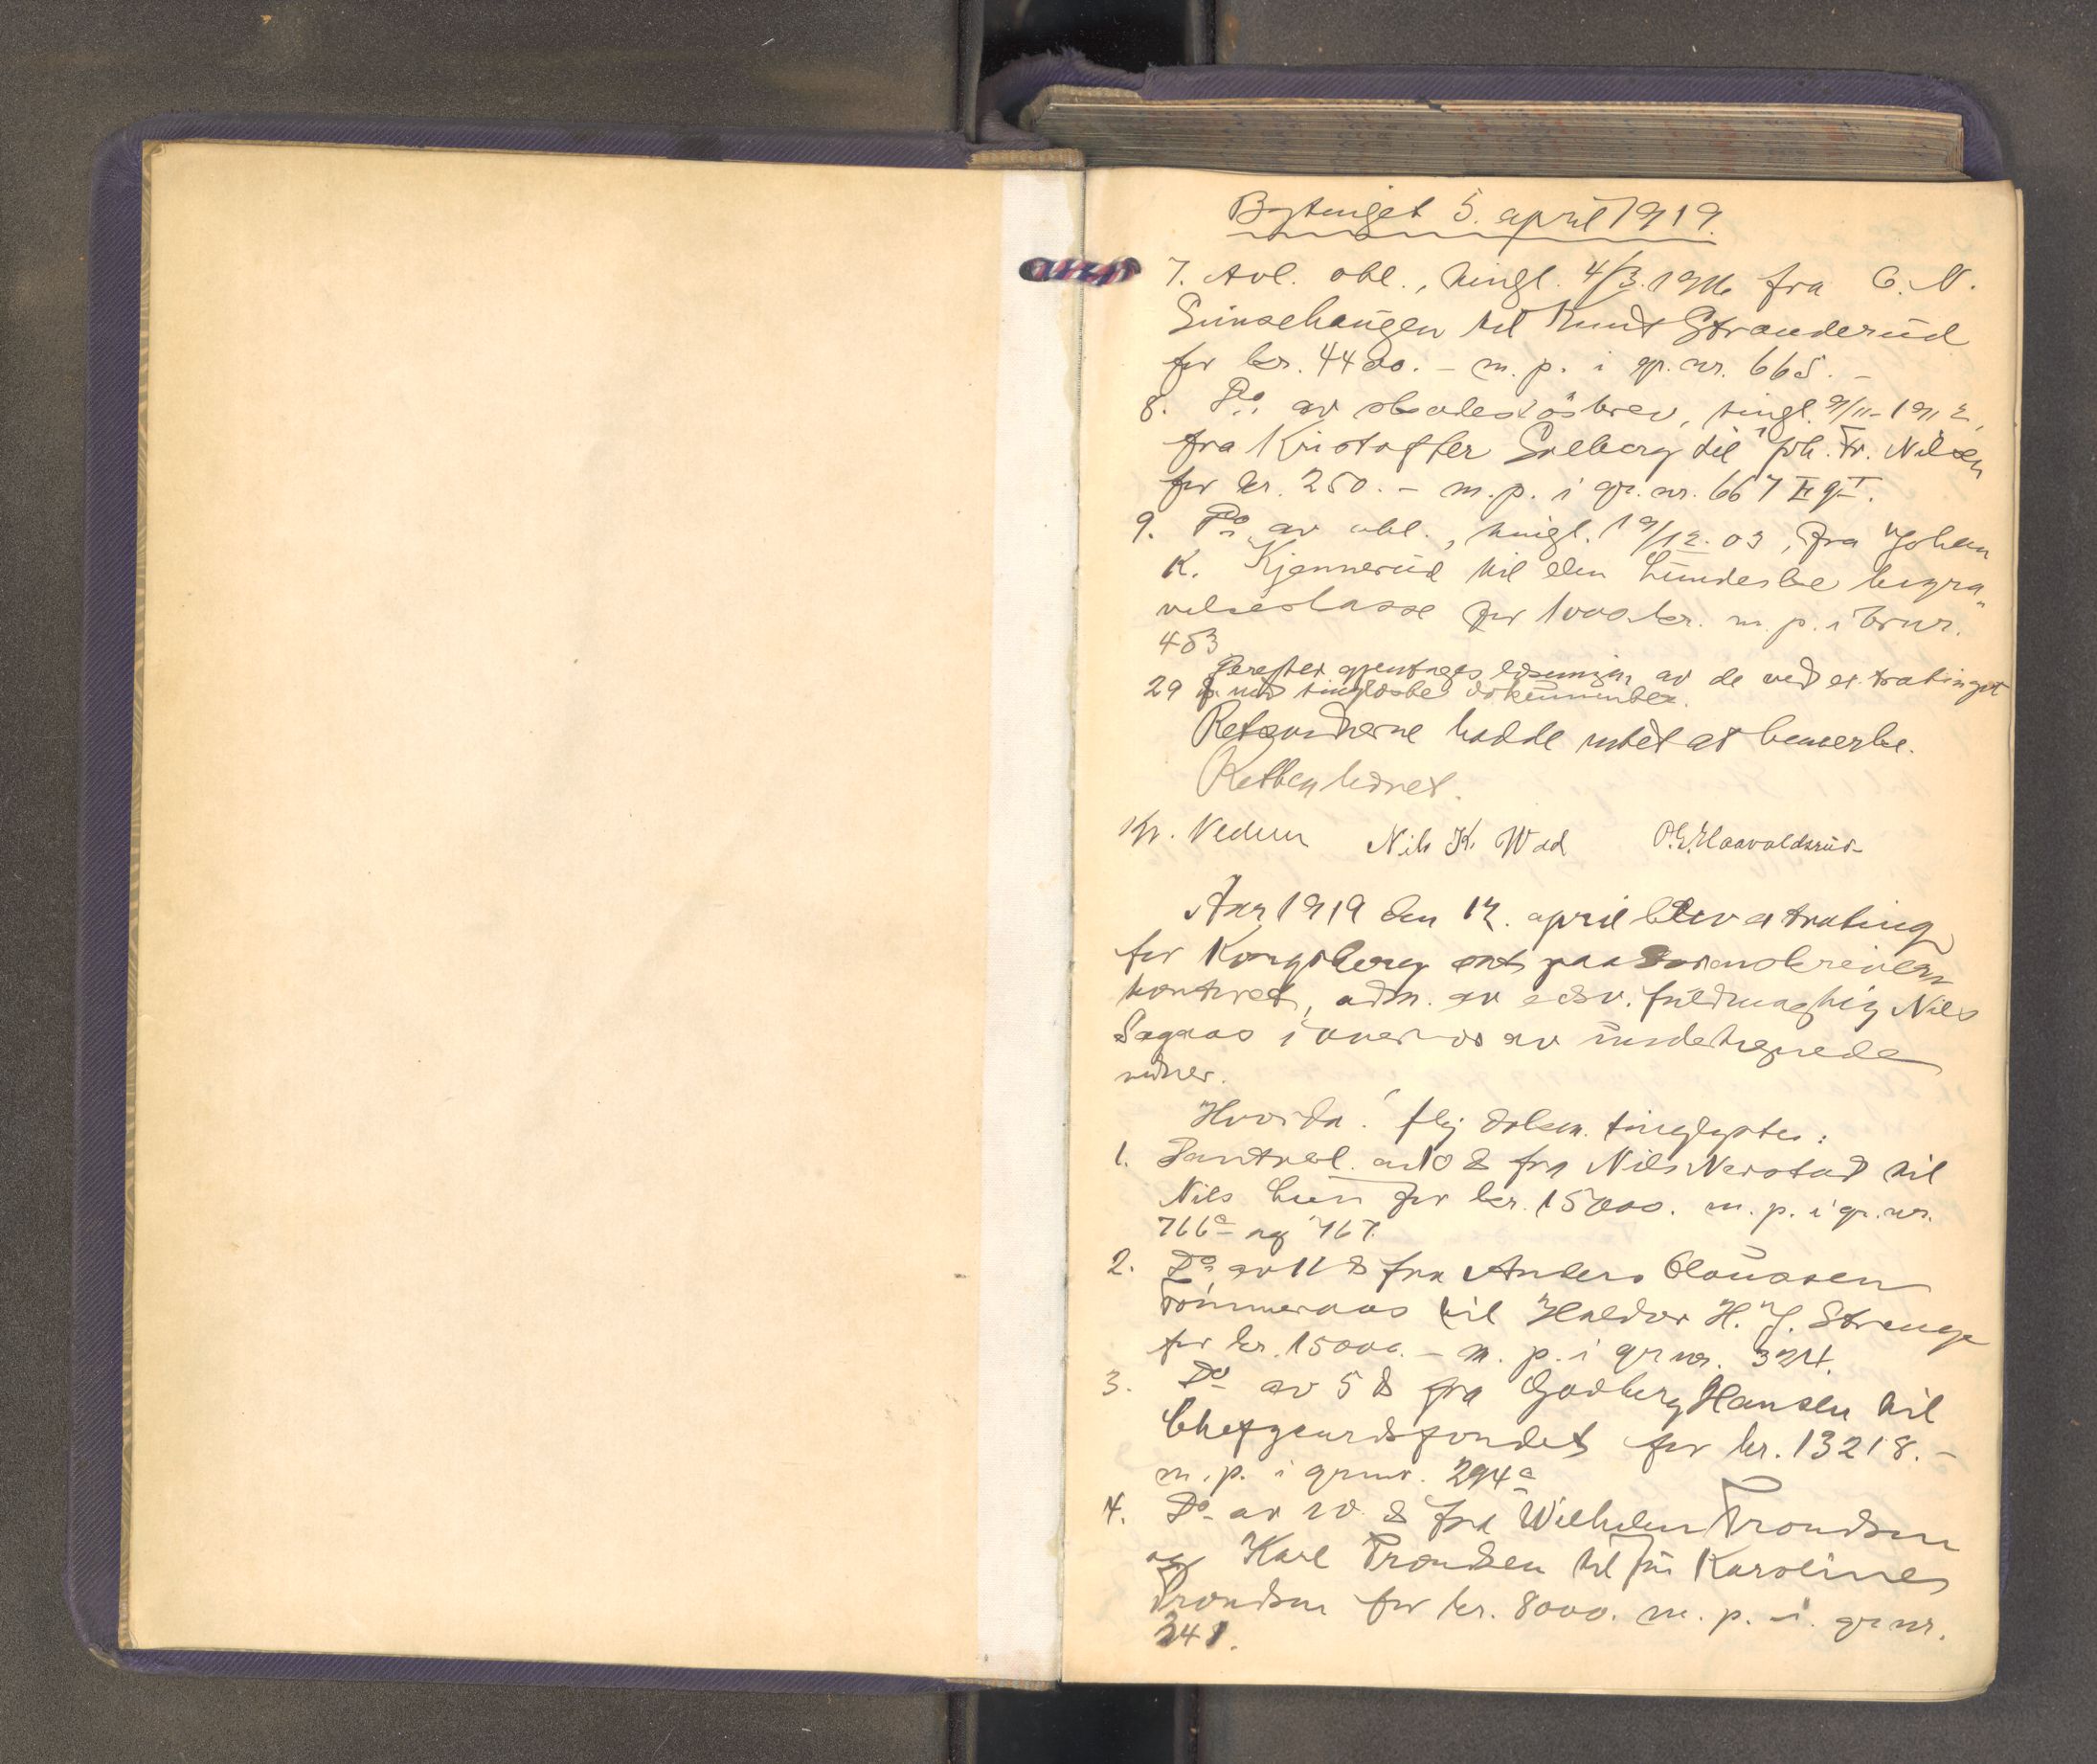 Bytinget 5. april 1919.
7. Avl. obl., tingl. 4/3. 1916 fra C. N.
Simsehaugen til Knut Stranderud
for kr. 4400. – m. p. i gr. nr. 665. –
8. Do. av skadesløsbrev, tingl. 9/11 - 1912,
fra Kristoffer Solberg til Joh. Fr. Nilsen
for kr. 250. – m. p. i gr. nr. 667
9. Do. av obl., tingl. 19/12. 03, fra Johan
K. Kjennerud til den Lundeske begra„
velseskasse for 1000 kr. m. p. i
453
Derefter gjentages læsningen av de ved extratinget
29 mars tinglæste dokumenter.
Retsvidnerne hadde intet at bemerke.
Retten hævet.
Kr. Vedum Nils K. Wad O. G. Haavaldsrud
Aar 1919 den 12. april blev extrating
for Kongsberg sat paa Sorenskriver
kontoret, adm. av edsv. fuldmægtig Nils
Sagaas i overvær av undertegnede
vidner.
Hvorda! flg. dokum. tinglystes:
1. Pantobl. av 10 ds fra Nils Nerstad til
Nils Lien for kr. 15000. m. p. i gr. nr.
766a og 767.
2. Do. av 11 ds fra Anders Claussen
Tømmeraas til Haldor H. J. Strenge
for kr. 15000. – m. p. i gr nr. 324.
3. Do av 5 ds fra Godberg Hansen til
Chefgaardsfondet for kr. 13218. –
m. p. i grnr. 294a
4. Do av 10 ds fra Wilhelm Trondsen
og Karl Trondsen til fru Karoline
Trondsen for kr. 8000. m. p. i gr nr.
341.